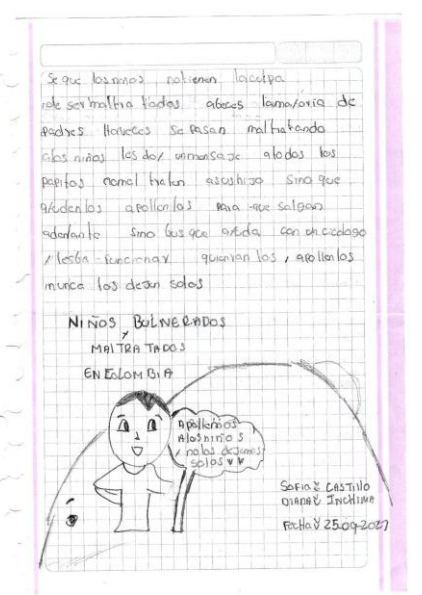 Se que los niños no tienen la culpa
de ser maltra tiados abeces lamaloria de
padres Haveces se pasan maltratando
alos niños les doy unmensaje atodos los
papitos nomal traten asushijo sino que
ayudenlos apollenlos para que salgan
adenlante sino busque ayuda con un cicologo
y lesba funcionar quieranlos, apollenlos
nunca los dejen solos
NIÑOS BULNERADOS
Y
MALTRATADOS
EN COLOMBIA
Apollemos
Alosniños
y nolos dejemos
solos
SOFIA CASTILLO
DIANA INCHIMA
FECHA 25-09-2021